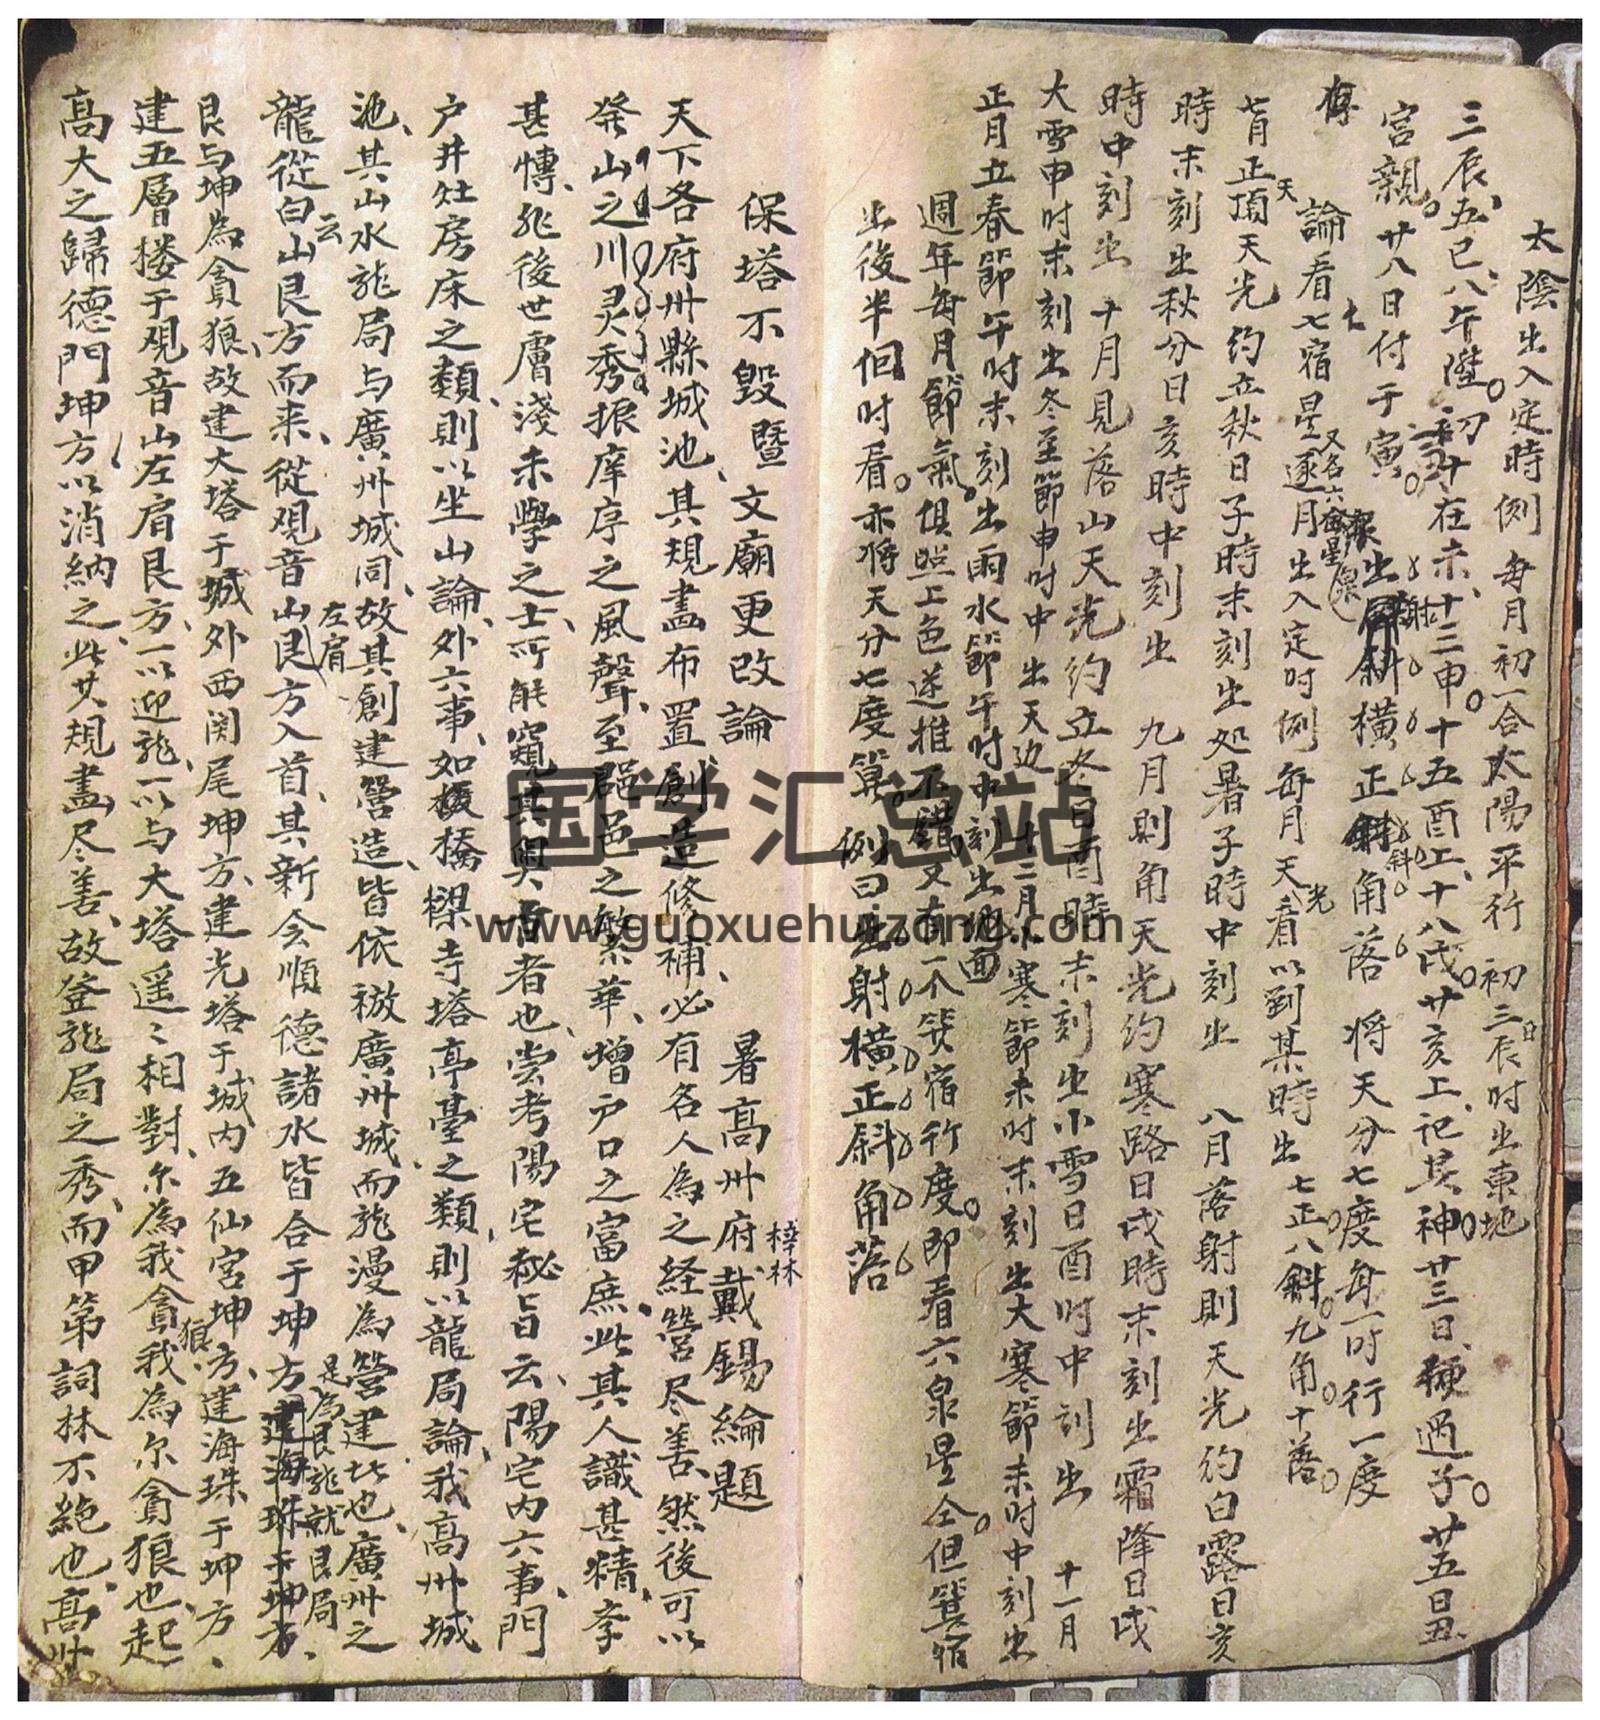 太陰出入定時例 每月初一合太陽平行 初三日辰时出東地
三辰五巳八午陞 初十在未十三申十五酉上十八戌廿亥上记其神廿三日 過子廿五日丑
宮親廿八日付于寅 出射斜橫正斜角落 将天分七度每一时行一度
論看七宿星逐月出入定时例 每月天光看以到某時出 七正八斜九角十落
又名六合星
七月正頂天光約立秋日子時末刻出処暑子時中刻出 八月落射則天光約白露日亥
時末刻出秋分日亥時中刻出 九月則角天光約寒路日戌時末刻出霜降日戌
時中刻出 十月見落山天光約立冬日酉時末刻出小雪日酉时中刻出 十一月
大雪申时末刻出冬至節申时中出天边 十二月小寒節未时末刻出大寒節未时中刻出
正月立春節午时末刻出雨水節午时中刻出地面
週年每月節氣俱照上色遂推不錯又有一个箕宿行度即看六泉星仝但箕宿
出後半佢时看亦将天分七度算例曰出射橫正斜角落
保塔不毀暨文廟更改論 暑高州府戴錫綸題
梓林
天下各府州縣城池其規畫布置創造修補必有名人為之経營尽善然後可以
発山之川灵秀振庠序之風聲至郡邑之繁華增户口之富庶此其人識甚精李
甚慱非後世膚淺未學之士所能窺其奥旨者也尝考陽宅秘旨云陽宅内六事門
户井灶房床之類則以坐山論外六事如橋樑寺塔亭臺之類則以龍局論我高州城
池其山水龍局与廣州城同故其創建營造皆依倣廣州城而龍漫為營建此也廣州之
龍從白云山艮方而来從观音山左肩艮方入首其新会順德諸水皆合于坤方是為艮龍就艮局
艮与坤為貪狼故建大塔于城外西関尾坤方建光塔于城内五仙宮坤方建海珠于坤方
建五層楼于观音山左肩艮方一以迎龍一以与大塔遥〻相對尔為我貪狼我為尔貪狼也起
高大之歸德門坤方以消納之此廿規畫尽善故登龍局之秀而甲第詞林不絶也高州